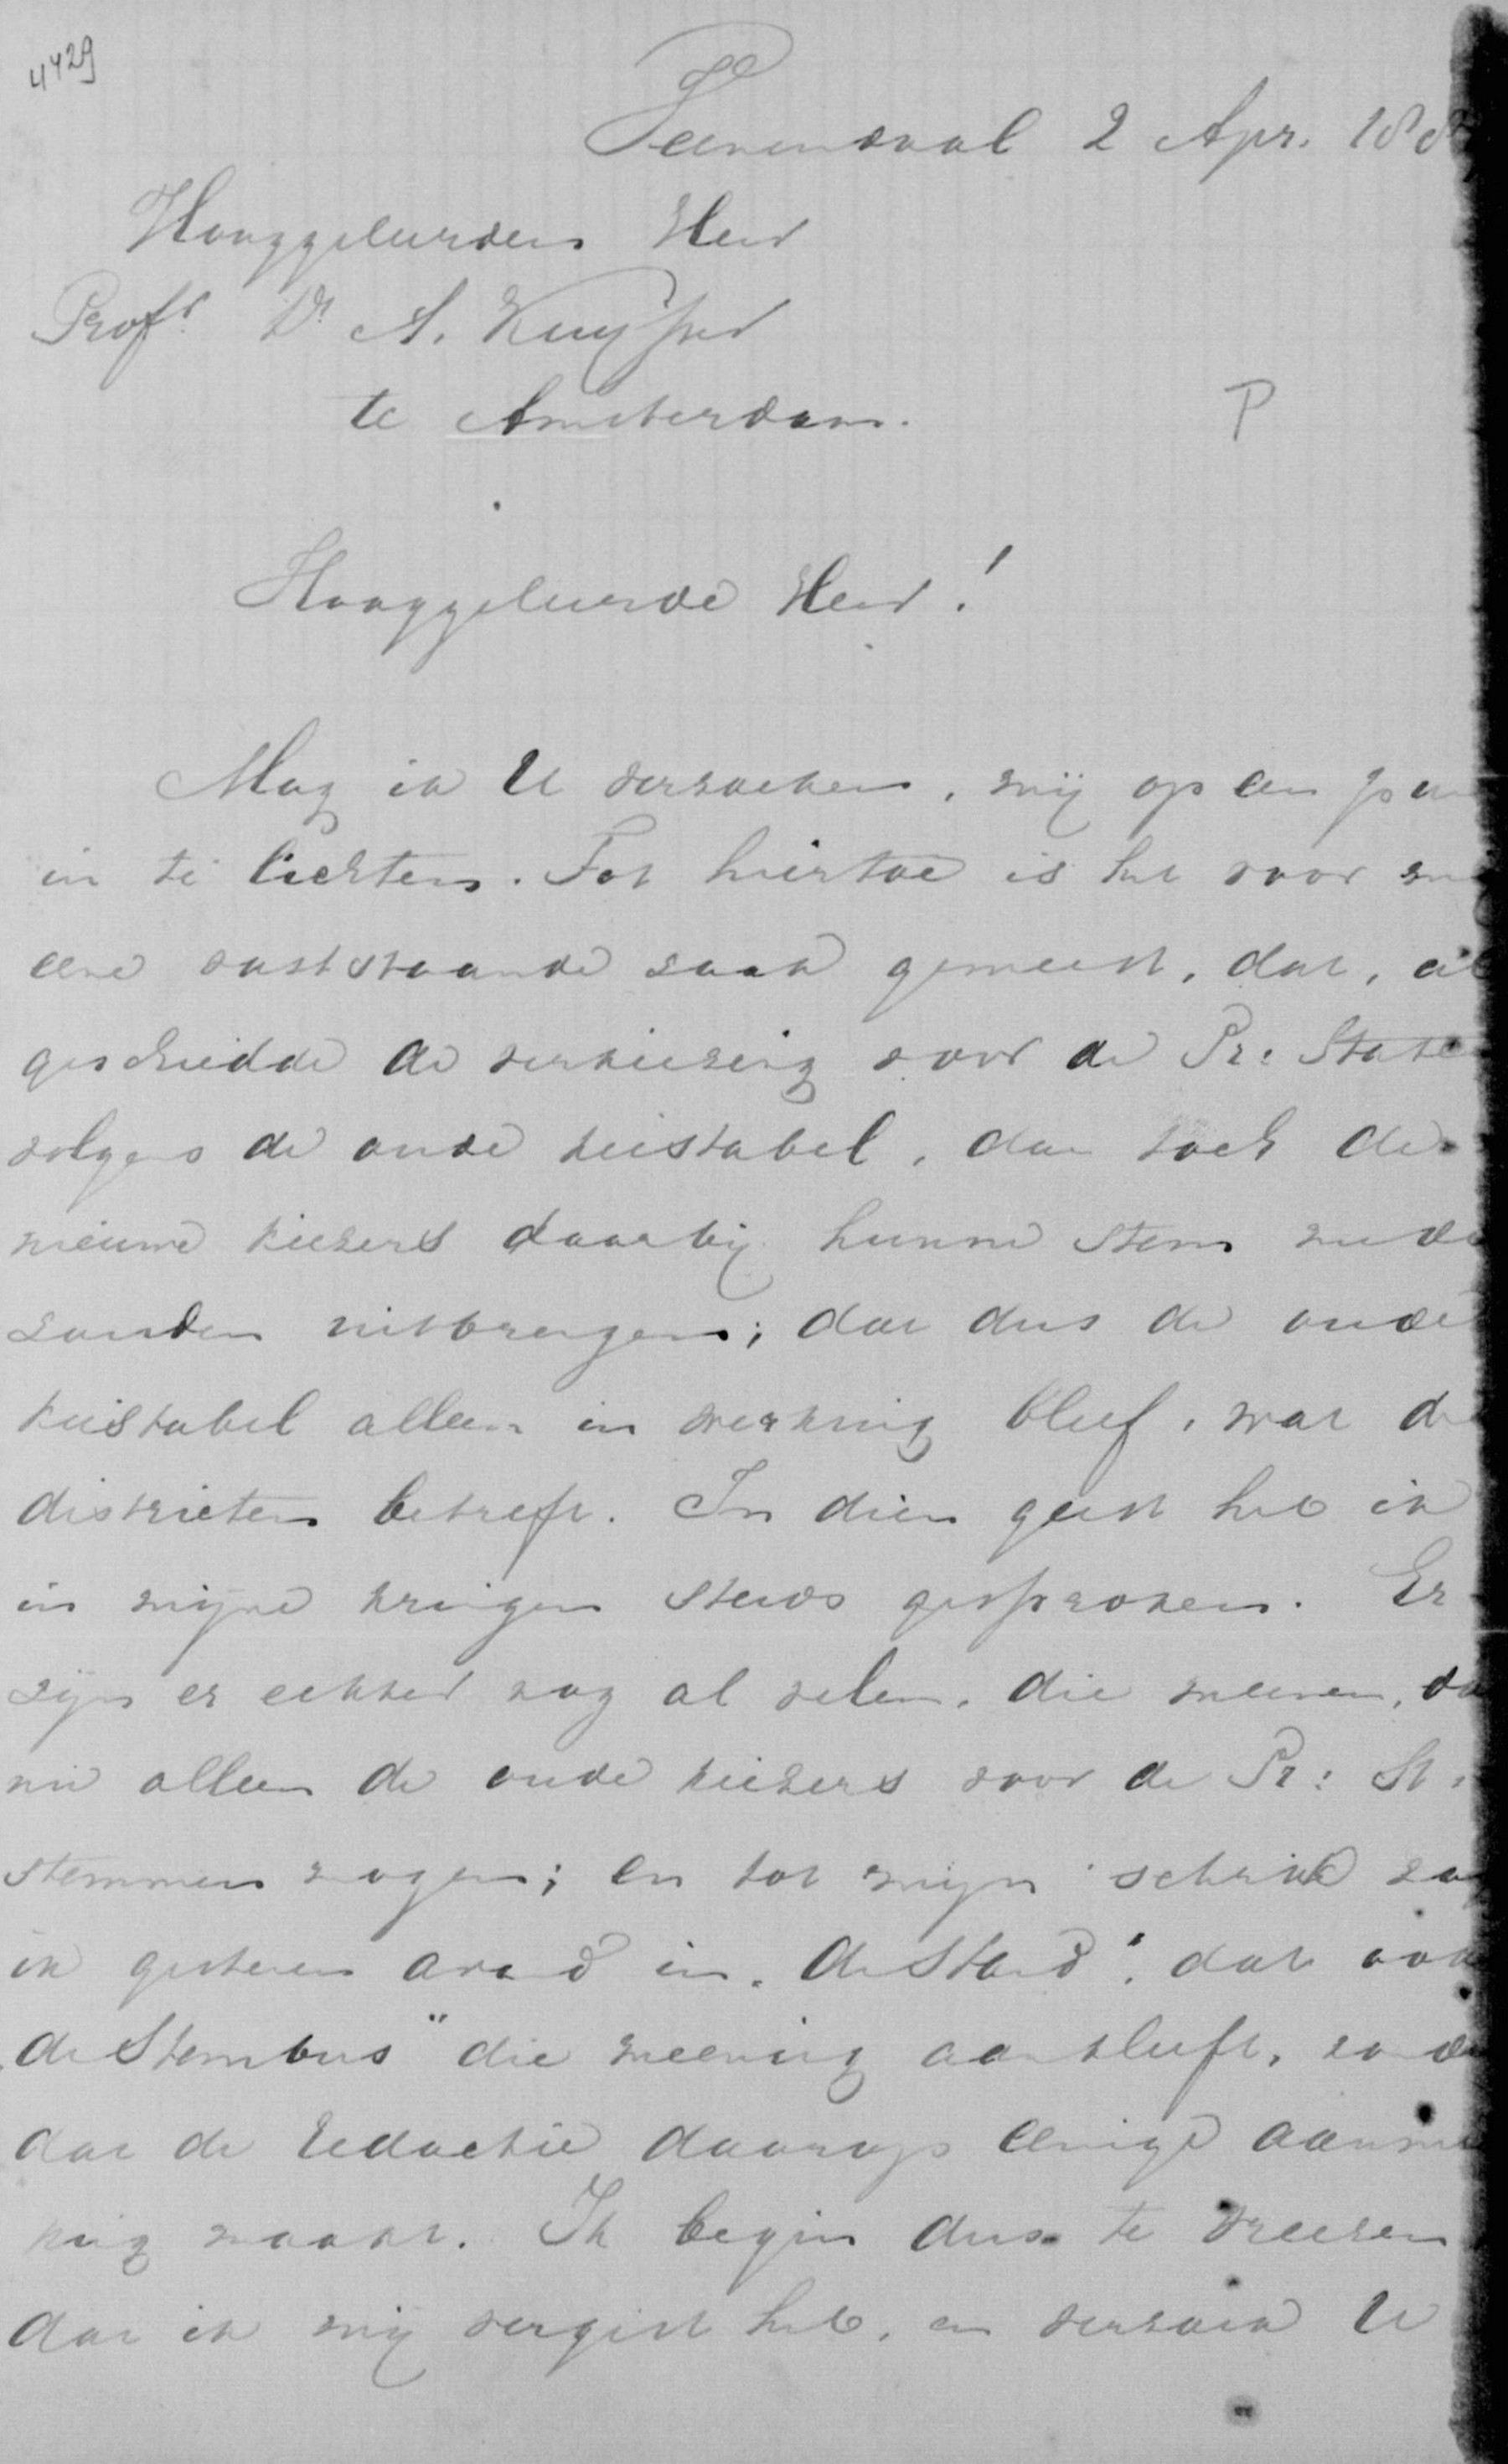 4429
Veenendaal 2 Apr. 188
Hooggeleerden Heer
Profr. Dr. A. Kuyper
te Amsterdam.
P
Hooggeleerde Heer!
Mag ik U verzoeken, mij op een pun
in te lichten. Tot hiertoe is het voor mij
eene vaststaande zaak geweest, dat, al
geschiedde de verkiezing voor de Pr: State
volgens de oude kiestabel, dan toch de
nieuwe kiezers daarbij hunne stem mede
zouden uitbrengen; dat dus de oude
kiestabel alleen in werking bleef, wat de
districten betreft. In dien geest heb ik
in mijne kringen steeds gesproken. Er
zijn er echter nog al velen, die meenen, da
nu alleen de oude kiezers voor de Pr: St:
stemmen mogen; en tot mijn schrik zag
ik gisteren avond in "de Stand", dat ook
"de Stembus" die meening aankleeft, zonde
dat de Redactie daarop eenige aanmer
king maakt. Ik begin dus te vreezen
dat ik mij vergist heb, en verzoek U